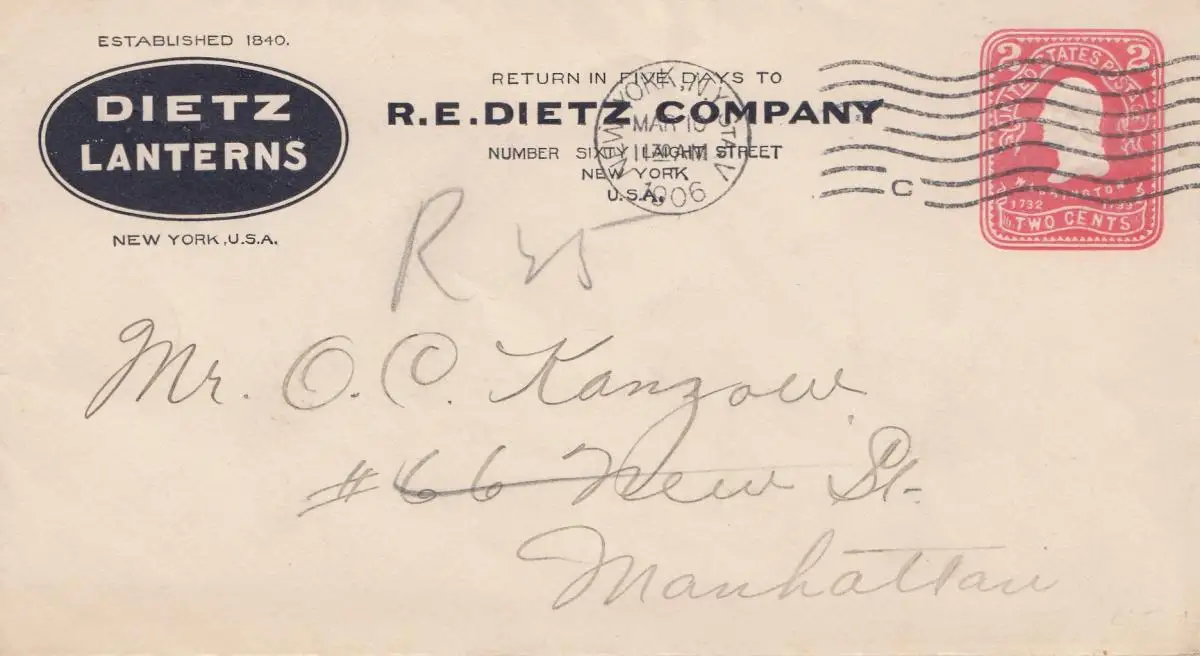 ESTABLISHED 1840.
DIETZ
LANTERNS
NEW YORK, U.S.A.
RETURN IN FIVE DAYS TO
R.E. DIETZ COMPANY
NUMBER SIXTY LAIGHT STREET
NEW YORK
U.S.A.
NEW YORK, N.Y. STA. V
MAR 10
11 30 AM
1906
C
2 2
UNITED STATES POSTAGE
WASHINGTON
1732 1799
TWO CENTS
R 25
Mr. O. C. Kanzow
#66 New St.
Manhattan